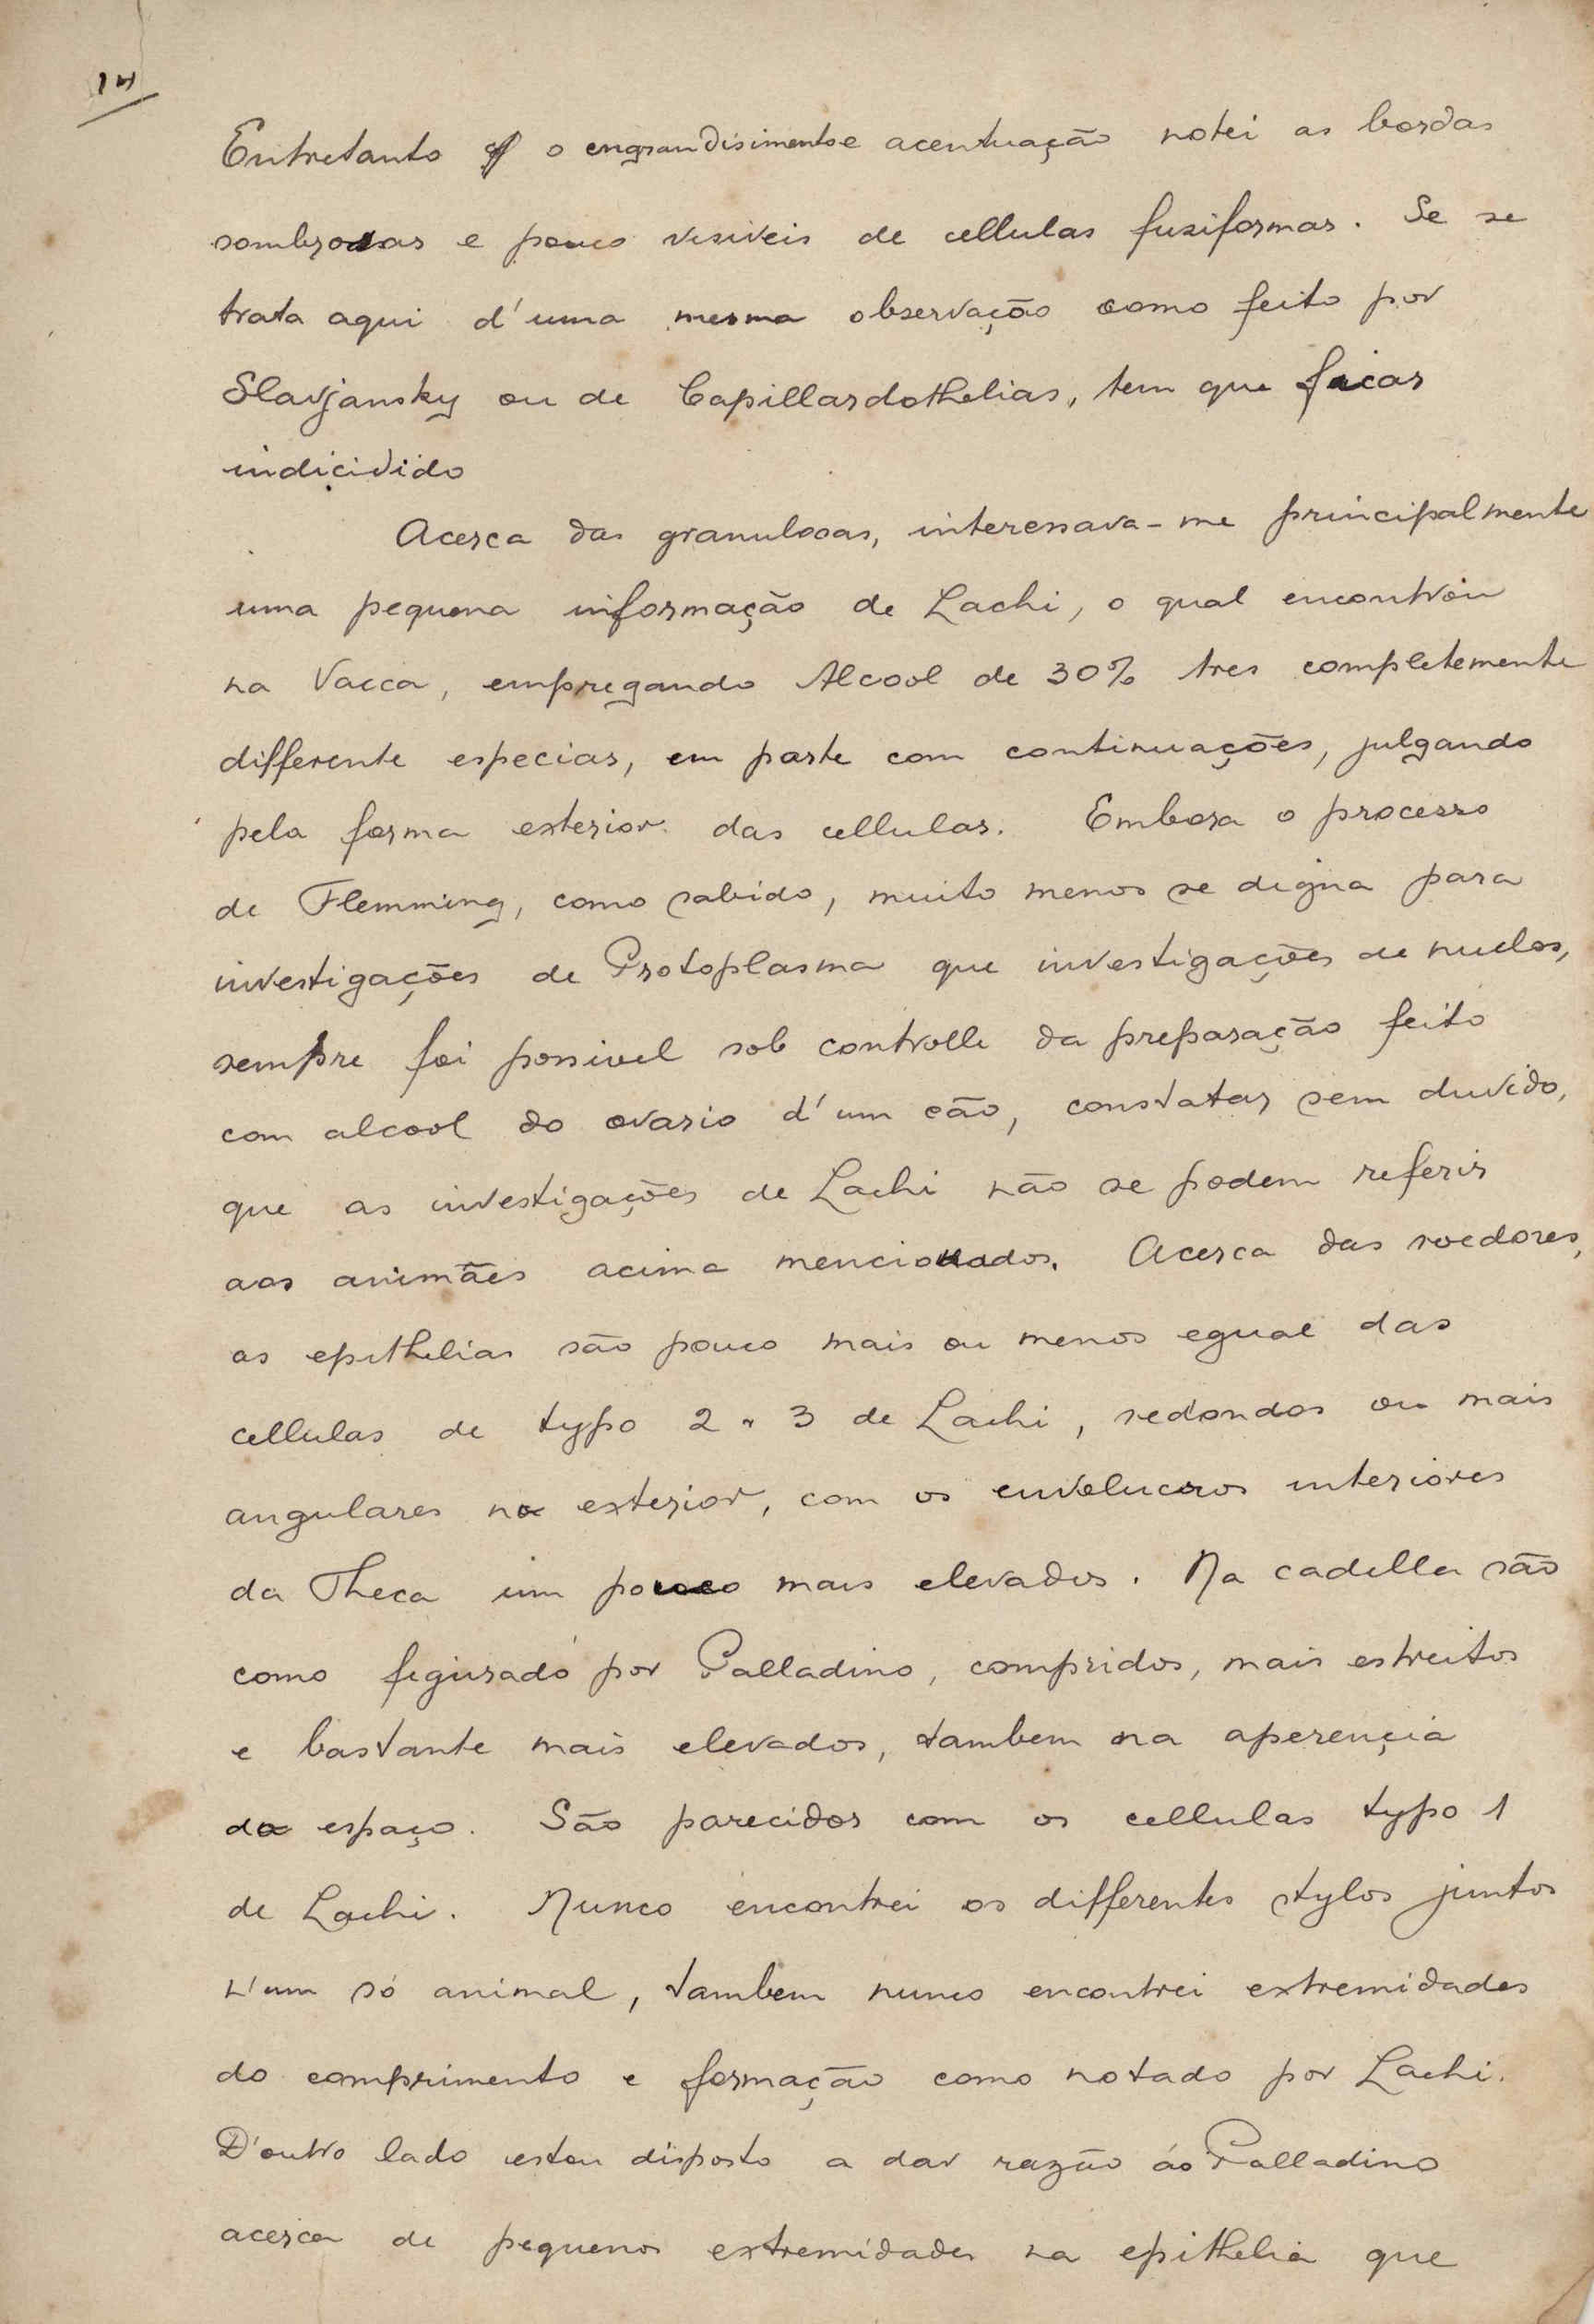 14
Entretanto o engrandisimento e acentuação notei as bordas
sombrosas e pouco visiveis de cellulas fusiformas. Se se
trata aqui d'uma mesma observação como feito por
Slavjansky ou de Capillardothelias, tem que ficar
indicidido
Acerca das granulosas, interessava-me principalmente
uma pequena informação de Lachi, o qual encontrou
na Vacca, empregando Alcool de 30% tres completemente
differente especias, em parte com continuações, julgando
pela forma exterior das cellulas. Embora o processo
de Flemming, como sabido, muito menos se digna para
investigações de Protoplasma que investigações de nuclos,
sempre foi possivel sob controlle da preparação feito
com alcool do ovario d'um cão, constatar sem duvido,
que as investigações de Lachi não se podem referir
aos animães acima mencionados. Acerca das roedores,
as epithelias são pouco mais ou menos egual das
cellulas de typo 2 3 de Lachi, redondos ou mais
angulares no exterior, com os envolucros interiores
da Theca um pouco mais elevados. Na cadella são
como figurado por Palladino, compridos, mais estreitos
e bastante mais elevados, tambem na aperençia
do espaço. São parecidos com os cellulas typo 1
de Lachi. Nunco encontrei os differentes stylos juntos
n'um só animal, tambem nunco encontrei extremidades
do comprimento e formação como notado por Lachi.
D'outro lado estou disposto a dar razão áo Palladino
acerca de pequenos extremidades na epithelia que